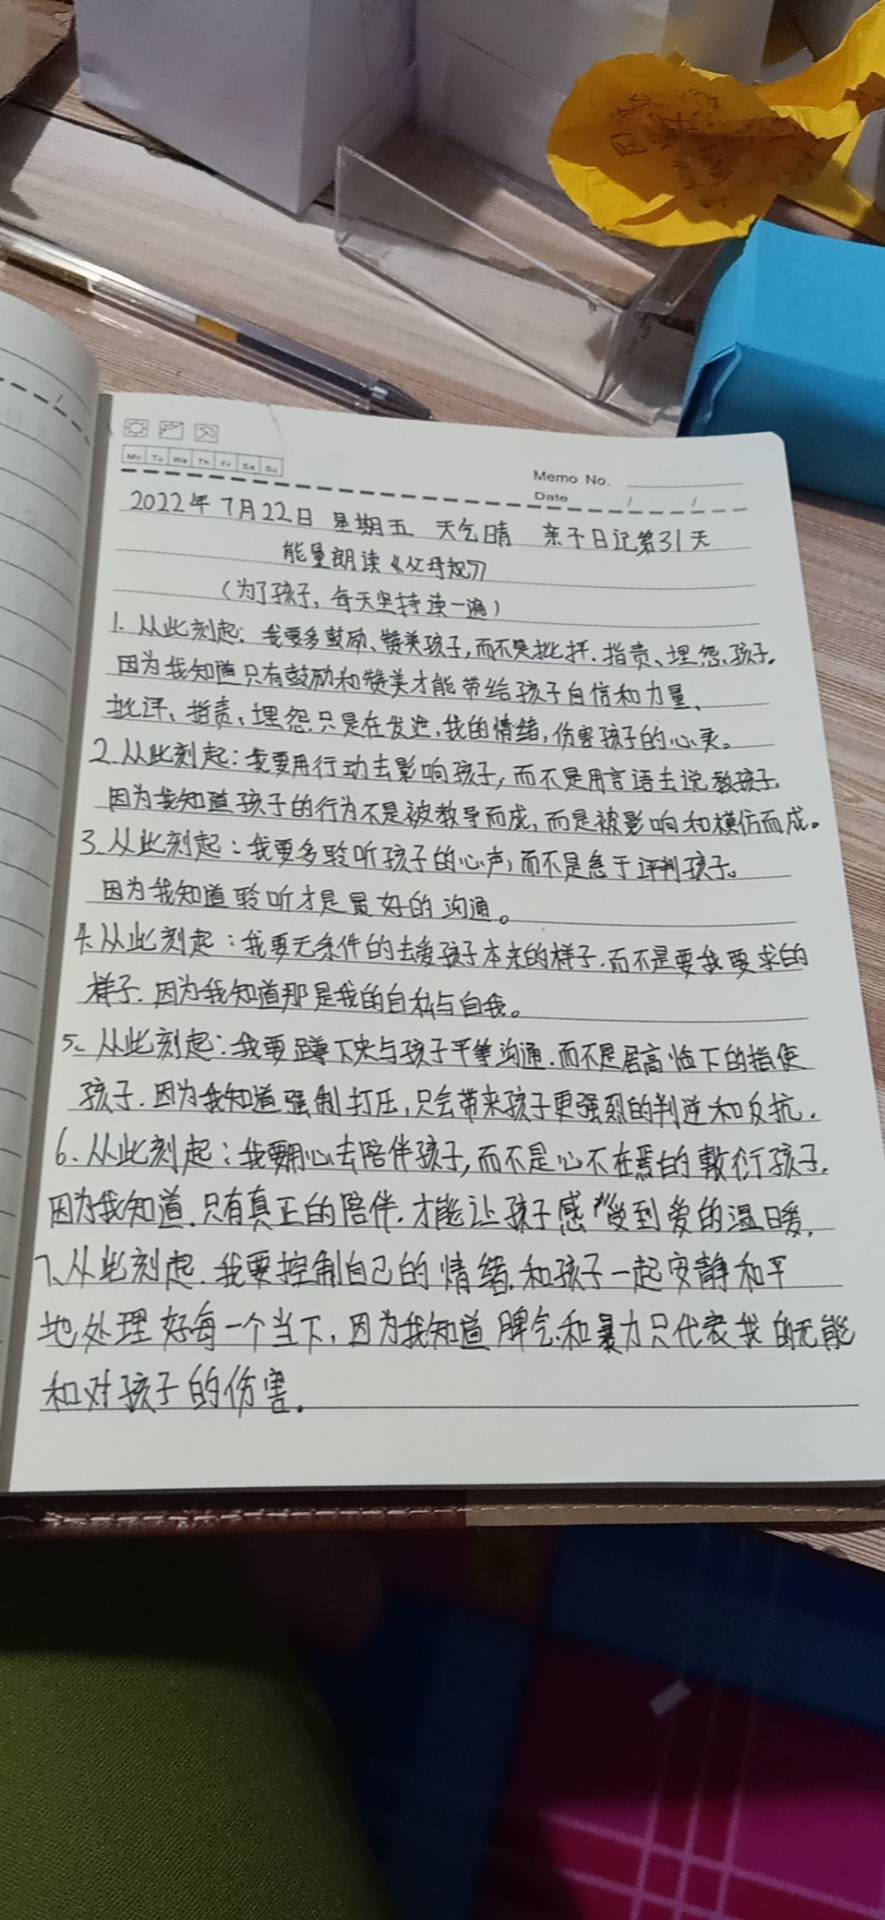 Mo Tu We Th Fr Sa Su
Memo No.
Date / /
2022年7月22日 星期五 天气晴 亲子日记第31天
能量朗读《父母规》
(为了孩子,每天坚持读一遍)
1. 从此刻起:我要多鼓励、赞美孩子,而不是批评、指责、埋怨、孩子。
因为我知道只有鼓励和赞美才能带给孩子自信和力量、
批评、指责、埋怨只是在发泄,我的情绪,伤害孩子的心灵。
2.从此刻起:我要用行动去影响孩子,而不是用言语去说教孩子
因为我知道孩子的行为不是被教导而成,而是被影响和模仿而成。
3.从此刻起:我要多聆听孩子的心声,而不是急于评判孩子。
因为我知道聆听才是最好的沟通。
4.从此刻起:我要无条件的去爱孩子本来的样子.而不是要我要求的
样子.因为我知道那是我的自私与自我。
5.从此刻起:我要蹲下来与孩子平等沟通.而不是居高临下的指使
孩子.因为我知道强制打压,只会带来孩子更强烈的判逆和反抗.
6.从此刻起:我要用心去陪伴孩子,而不是心不在焉的敷衍孩子.
因为我知道.只有真正的陪伴.才能让孩子感受到爱的温暖.
7、从此刻起.我要控制自己的情绪.和孩子一起安静和平
地处理好每一个当下,因为我知道脾气和暴力只代表我的无能
和对孩子的伤害.